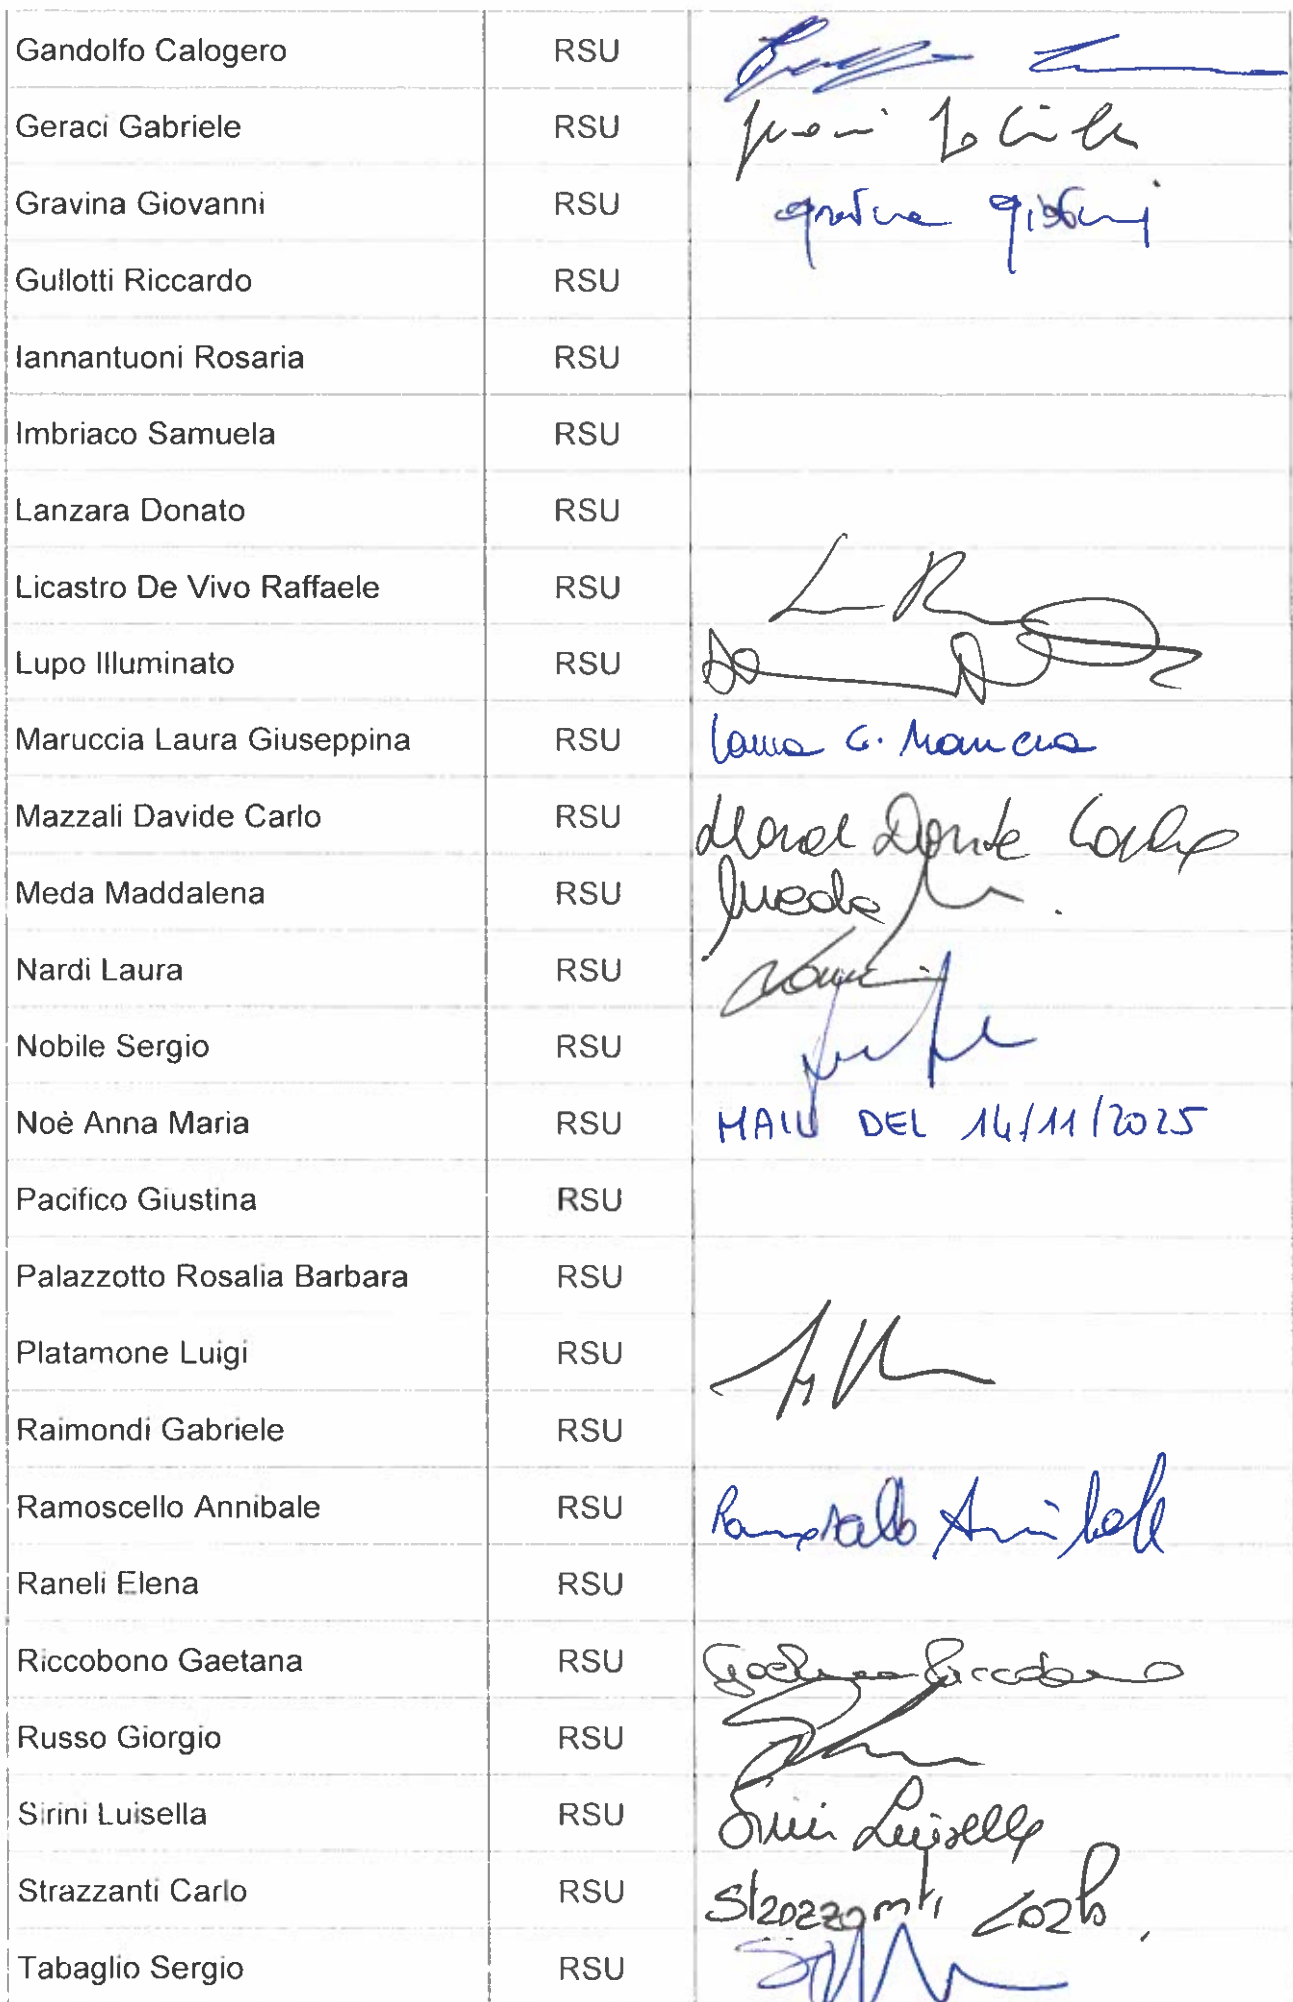 Gandolfo Calogero RSU
Geraci Gabriele RSU
Gravina Giovanni RSU
Gullotti Riccardo RSU
Iannantuoni Rosaria RSU
Imbriaco Samuela RSU
Lanzara Donato RSU
Licastro De Vivo Raffaele RSU
Lupo Illuminato RSU
Maruccia Laura Giuseppina RSU Laura G. Maruccia
Mazzali Davide Carlo RSU
Meda Maddalena RSU Meda
Nardi Laura RSU
Nobile Sergio RSU
Noè Anna Maria RSU MAIL DEL 14/11/2025
Pacifico Giustina RSU
Palazzotto Rosalia Barbara RSU
Platamone Luigi RSU
Raimondi Gabriele RSU
Ramoscello Annibale RSU Ramoscello Annibale
Raneli Elena RSU
Riccobono Gaetana RSU Gaetana Riccobono
Russo Giorgio RSU
Sirini Luisella RSU Sirini Luisella
Strazzanti Carlo RSU Strazzanti Carlo
Tabaglio Sergio RSU